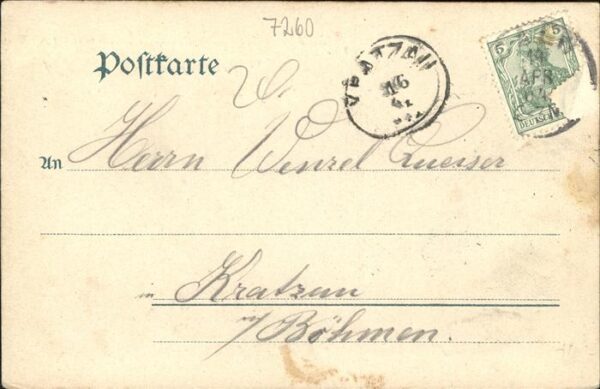 7260
Postkarte
KRATZAU
16
5
5
14
APR
DEUTSCHES
An Herrn Wenzel Queisser
in Kratzau
i/ Böhmen.